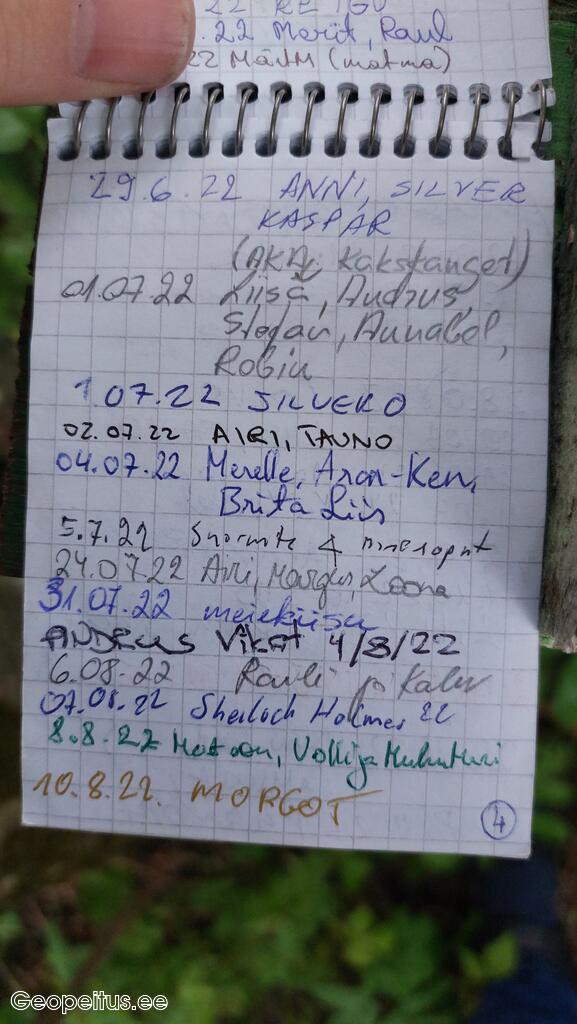 22 Marit, Raul
22 Märtm (matma)
29.6.22 ANNI, SILVER
KASPAR
(AKA; Kakstanget)
01.07.22 Liisa, Andrus,
Stefan, Annabel,
Robin
1 07.22 SILVER O
02.07.22 AIRI, TAUNO
04.07.22 Merelle, Aron-Ken,
Brita Liis
5.7.22
24.07.22 Airi, Margus, Leena
31.07.22 meiekiisu
ANDRUS Vikat 4/8/22
6.08.22 Rauli ja Kalev
07.08.22 Sherloch Holmes 22
8.8.22
10.8.22. MORGOT
4
Geopeitus.ee